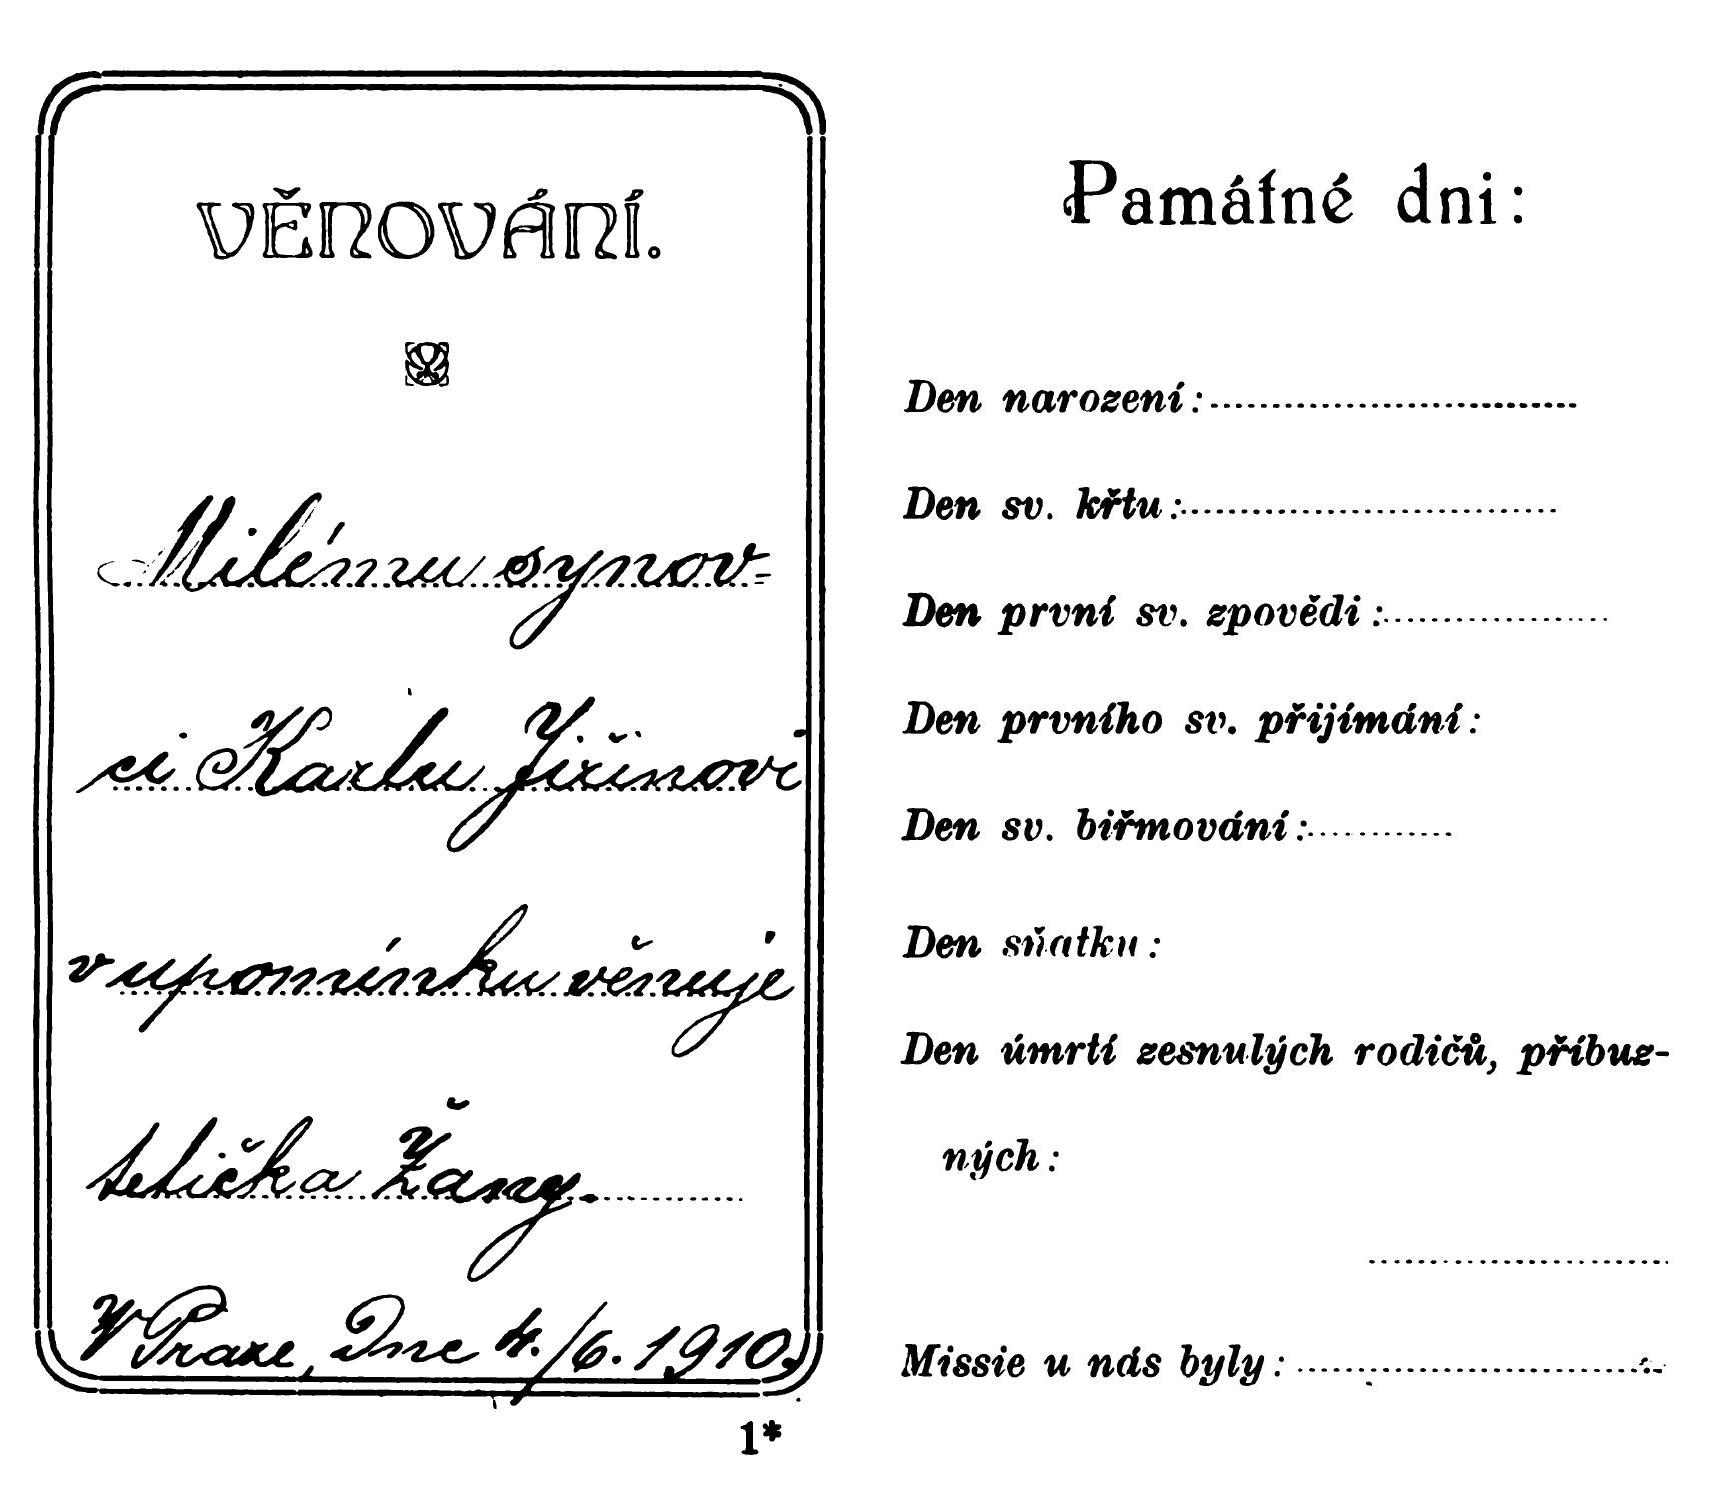 VĚNOVÁNÍ.
Milému synov=
ci Karlu Jiřinovi
v upomínku věnuje
tetička Žány.
V Praze, Dne 4./6. 1910.
1*
Památné dni:
Den narození:
Den sv. křtu:
Den první sv. zpovědi:
Den prvního sv. přijímání:
Den sv. biřmování:
Den sňatku:
Den úmrtí zesnulých rodičů, příbuz-
ných:
Missie u nás byly: